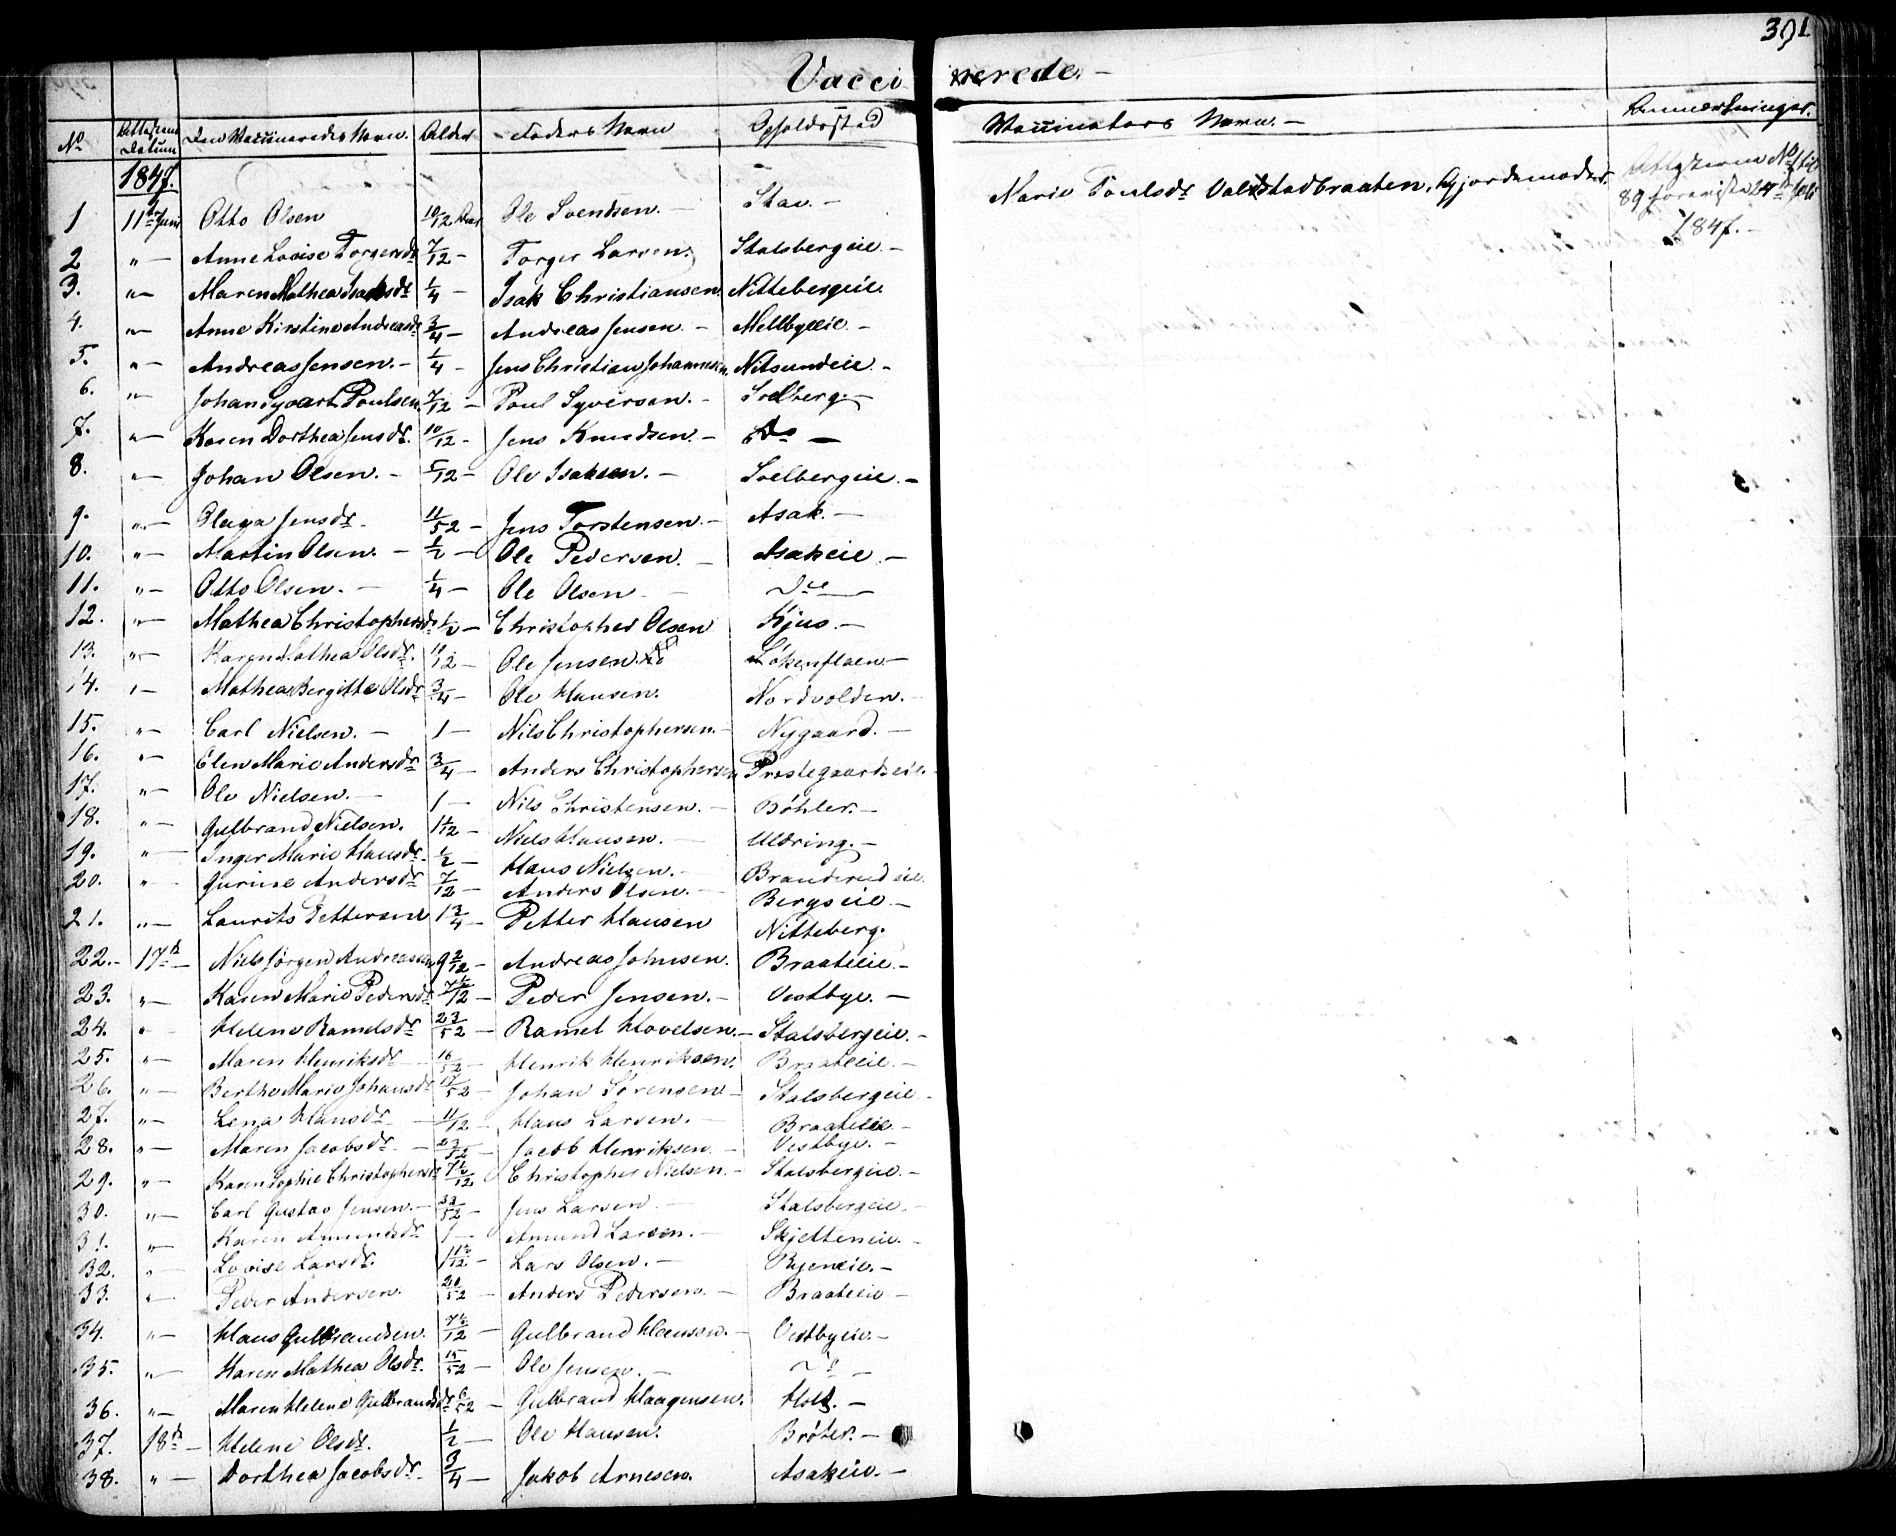 391
Vaccinerede. —
No Attestens Datum Den Vaccineredes Navn. Alder Faders Navn Opholdssted Vaccinators Navn. — Anmærkninger.
1847.
1 11te Juni Otto Olsen 10/12 Aar Ole Svendsen. — Stav. — Marie Poulsdr Valstadbraaten, Gjordemoder. Attesterne No 1 til 89 foreviste 24de 1847. —
2 " — Anne Lovise Torgersdr 7/12 — Torger Larsen. Stalsbergeie —
3. " — Maren Mathea Isaksdr 1/4 — Isak Christiansen. Nittebergeie.
4. " — Anne Kirstine Andreasdr 3/4 — Andreas Jensen. — Mellbyeeie. —
5. " — Andreas Jensen. — 1/4 — Jens Christian Johannesen. Nitsundeie. —
6. " — Johan Syvart Poulsen. 7/12 — Poul Syversen. — Solberg. —
7. " — Karen Dorthea Jensdr. 10/12 — Jens Knudsen. — Do —
8. " — Johan Olsen. — 5/12 — Ole Isaksen. — Solbergeie. —
9. " — Olaga Jensdr. 11/52 — Jens Torstensen. — Asak. —
10. " — Martin Olsen. — 1/2 — Ole Pedersen. — Asakeie. —
11. " — Otto Olsen. — 1/4 — Ole Olsen — Do —
12. " — Mathea Christophersdr 1/2 — Christopher Olsen Kjus. —
13. " — Karen Mathea Olsdr. 10/12 — Ole Jensen. Lökenflaen —
14. " — Mathea Bergitte Olsdr 3/4 — Ole Hansen. Nordvolden. —
15. " — Carl Nielsen. — 1 — Nils Christophersen. — Nygaard. —
16. " — Elen Marie Andersdr 3/4 — Anders Christophersen Prestegaardseie. —
17. " — Ole Nielsen. — 1 — Nils Christensen. — Böhler. —
18. " — Gulbrand Nielsen. 1 1/12 — Niels Hansen. — Uldring. —
19. " — Inger Marie Hansdr. 1/2 — Hans Nielsen. — Branderud eie.
20. " — Gurine Andersdr 7/12 — Anders Olsen. — Bergseie. —
21. " — Laurits Pettersen 1 3/4 — Petter Hansen Nitteberg.
22. — 17de — Niels Jörgen Andreasen 9 2/12 — Andreas Johnsen. Braateeie. —
23. " — Karen Marie Pedersdr 7 1/2/12 — Peder Jensen. — Vestbye. —
24. " — Helene Ramelsdr 23/52 — Ramel Hovelsen. — Stalsbergeie. —
25. " — Maren Henriksdr — 16/52 — Henrik Henriksen. Braateeie. —
26. " — Berthe Marie Johansdr 17/52 — Johan Sörensen — Stalsbergeie —
27. " — Lena Hansdr — 11/12 — Hans Larsen. — Braateeie. —
28. " — Maren Jacobsdr — 23/52 — Jacob Henriksen. — Vestbye. —
29. " — Karen Sophie Christophersdr 7 1/2/12 Christopher Nielsen. — Stalsbergeie. —
30. " — Carl Gustav Jensen. — 33/52 — Jens Larsen — Stalsbergeie. —
31. " — Karen Amundsdr 1 — Amund Larsen. — Skjetteneie. —
32. " — Lovise Larsdr. 1 1 1/2/12 — Lars Olsen. — Ryeneie. —
33. " — Peder Andersen. 20/52 — Anders Pedersen. — Braateeie —
34. " — Hans Gulbrandsen. 7 1/2/12 — Gulbrand Hansen. — Vestbyeie. —
35. " — Karen Mathea Olsdr. 15/52 — Ole Jensen. — Do —
36. " — Maren Helene Gulbrandsdr 6/52 — Gulbrand Haagensen. Holt. —
37. 18de — Helene Olsdr. 1/2 — Ole Hansen. Bröter. —
38. " — Dorthea Jacobsdr. 3/4 — Jakob Arnesen. Asakeie. —